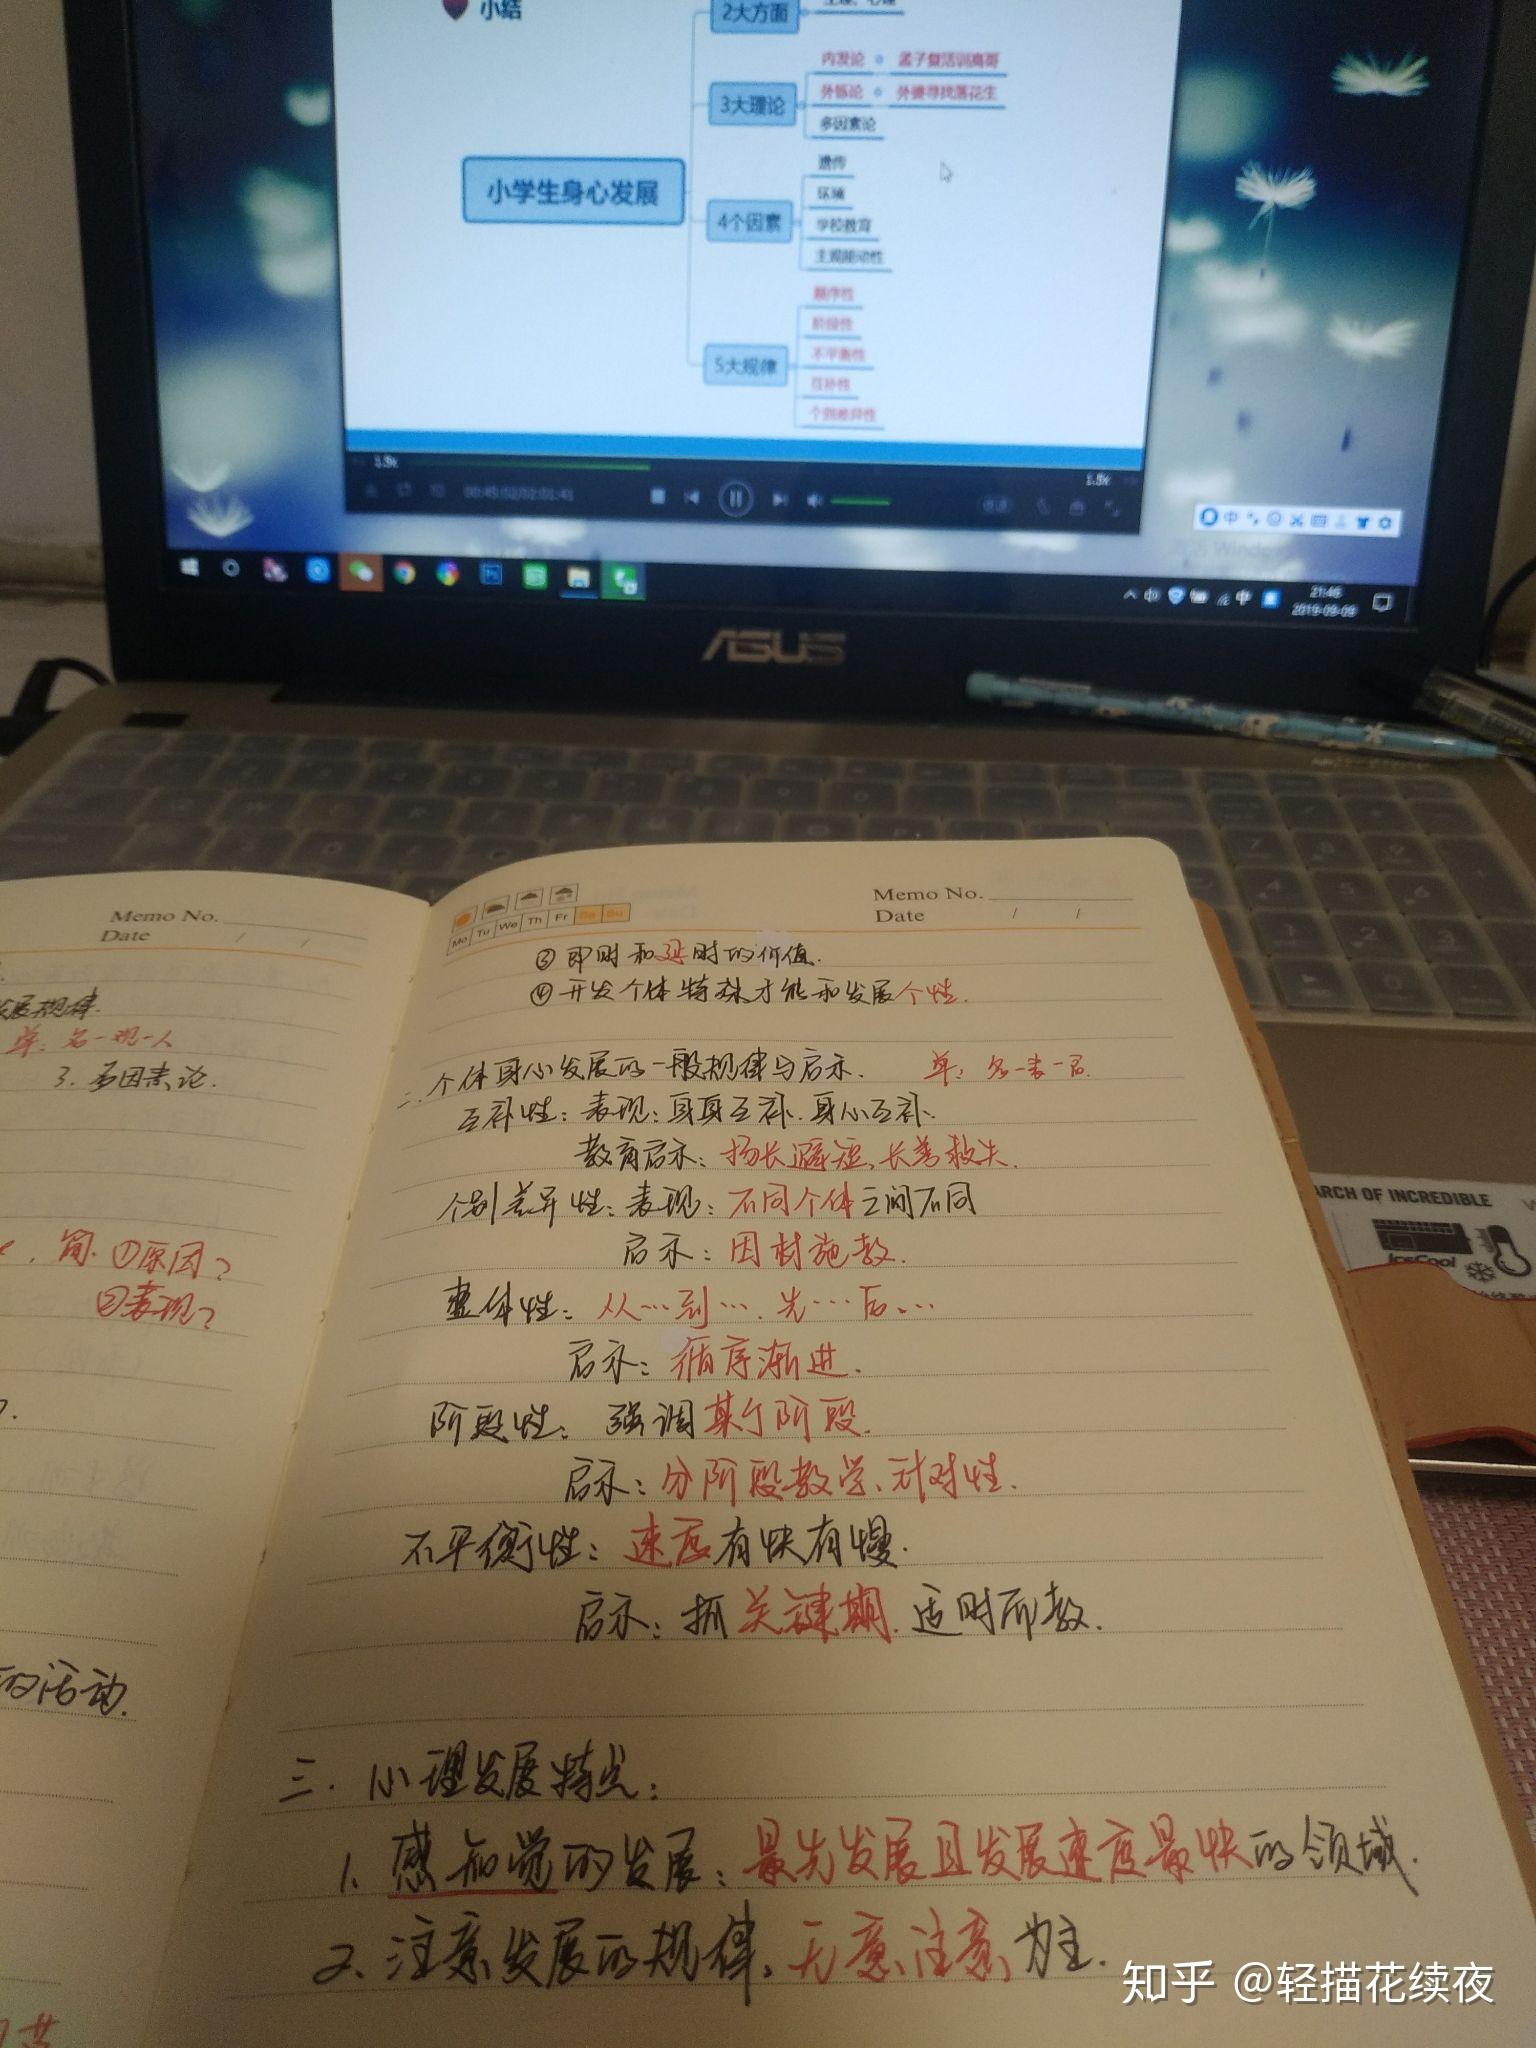 小结
2大方面
内发论 孟子复活训高哥
3大理论
外铄论 外婆寻找落花生
多因素论
小学生身心发展
遗传
环境
4个因素
学校教育
主观能动性
顺序性
阶段性
5大规律
不平衡性
互补性
个别差异性
1.5x
00:45:02/02:01:41
中
21:46
2019-09-09
ASUS
Memo No.
Date / /
发展规律.
单: 名一观一人
3. 多因素论.
简. ①原因?
②表现?
的活动.
Mo Tu We Th Fr Sa Su
Memo No.
Date / /
③ 即时和延时的价值.
④ 开发个体特殊才能和发展个性.
二. 个体身心发展的一般规律与启示. 单: 名一表一启.
互补性: 表现: 身身互补. 身心互补.
教育启示: 扬长避短、长善救失.
个别差异性: 表现: 不同个体之间不同
启示: 因材施教.
整体性: 从…到…. 先…后…
启示: 循序渐进.
阶段性: 强调某个阶段.
启示: 分阶段教学、针对性.
不平衡性: 速度有快有慢.
启示: 抓关键期. 适时而教.
三. 心理发展特点:
1. 感知觉的发展: 最先发展且发展速度最快的领域.
2. 注意发展的规律. 无意注意为主.
ARCH OF INCREDIBLE
IceCool
知乎 @轻描花续夜